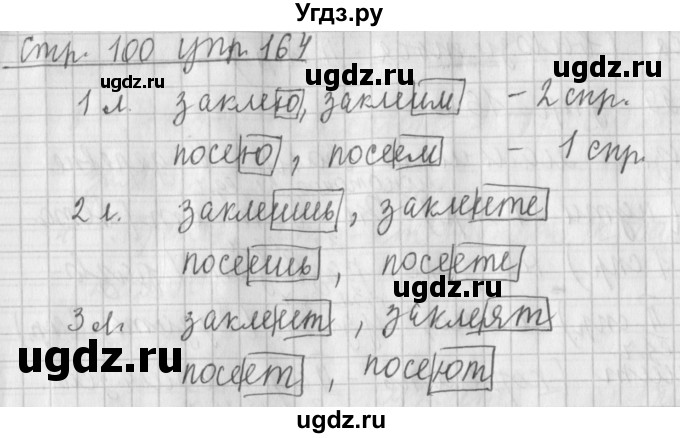 Угдз.ру
стр. 100 упр. 164
ugdz.ru
ugdz.ru
1 л. заклею, заклеим - 2 спр.
посею, посеем - 1 спр.
ugdz.ru
2 л. заклеишь, заклеите
ugdz.ru
посеешь, посеете
ugdz.ru
3 л. заклеит, заклеят
ugdz.ru
посеет, посеют
ugdz.ru